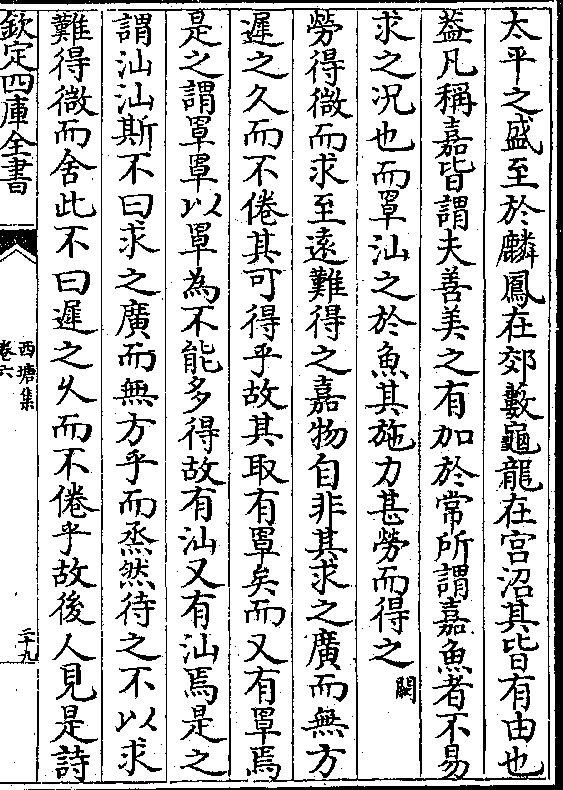 太平之盛至於麟鳳在郊藪龜龍在宫沼其皆有由也
葢凡稱嘉皆謂夫善美之有加於常所謂嘉魚者不易
求之況也而罩汕之於魚其施力甚勞而得之闕
勞得微而求至遠難得之嘉物自非其求之廣而無方
遲之久而不倦其可得乎故其取有罩矣而又有罩焉
是之謂罩罩以罩為不能多得故有汕又有汕焉是之
謂汕汕斯不曰求之廣而無方乎而烝然待之不以求
難得微而舍此不曰遲之久而不倦乎故後人見是詩
欽定四庫全書
西塘集
卷六
三十九